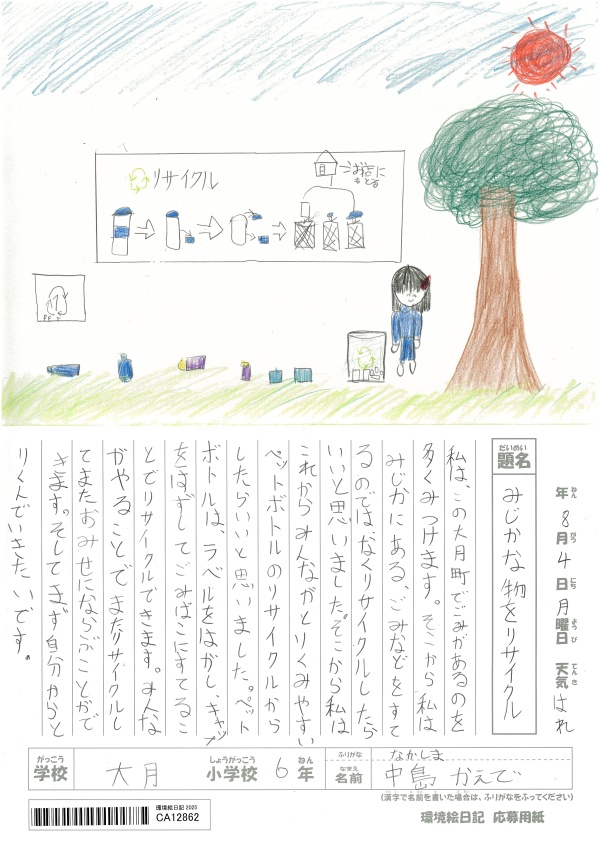 リサイクル
お店に
もどる
年 8月 4日 月曜日 天気 はれ
ねん がつ にち ようび てんき
だいめい
題名 みじかな物をリサイクル
私は、この大月町でごみがあるのを
多くみつけます。そこから私は
みじかにある、ごみなどをすて
るのではなくリサイクルしたら
いいと思いました。そこから私は
これからみんながとりくみやすい
ペットボトルのリサイクルから
したらいいと思いました。ペット
ボトルは、ラベルをはがし、キャップ
をはずしてごみばこにすてるこ
とでリサイクルできます。みんな
がやることでまたリサイクルし
てまたおみせにならぶことがで
きます。そしてまず自分からと
りくんでいきたいです。
がっこう しょうがっこう ねん
学校 大月 小学校 6年
ふりがな なかしま
なまえ
名前 中島 かえで
(漢字で名前を書いた場合は、ふりがなをふってください)
環境絵日記 2025
CA12862
環境絵日記 応募用紙